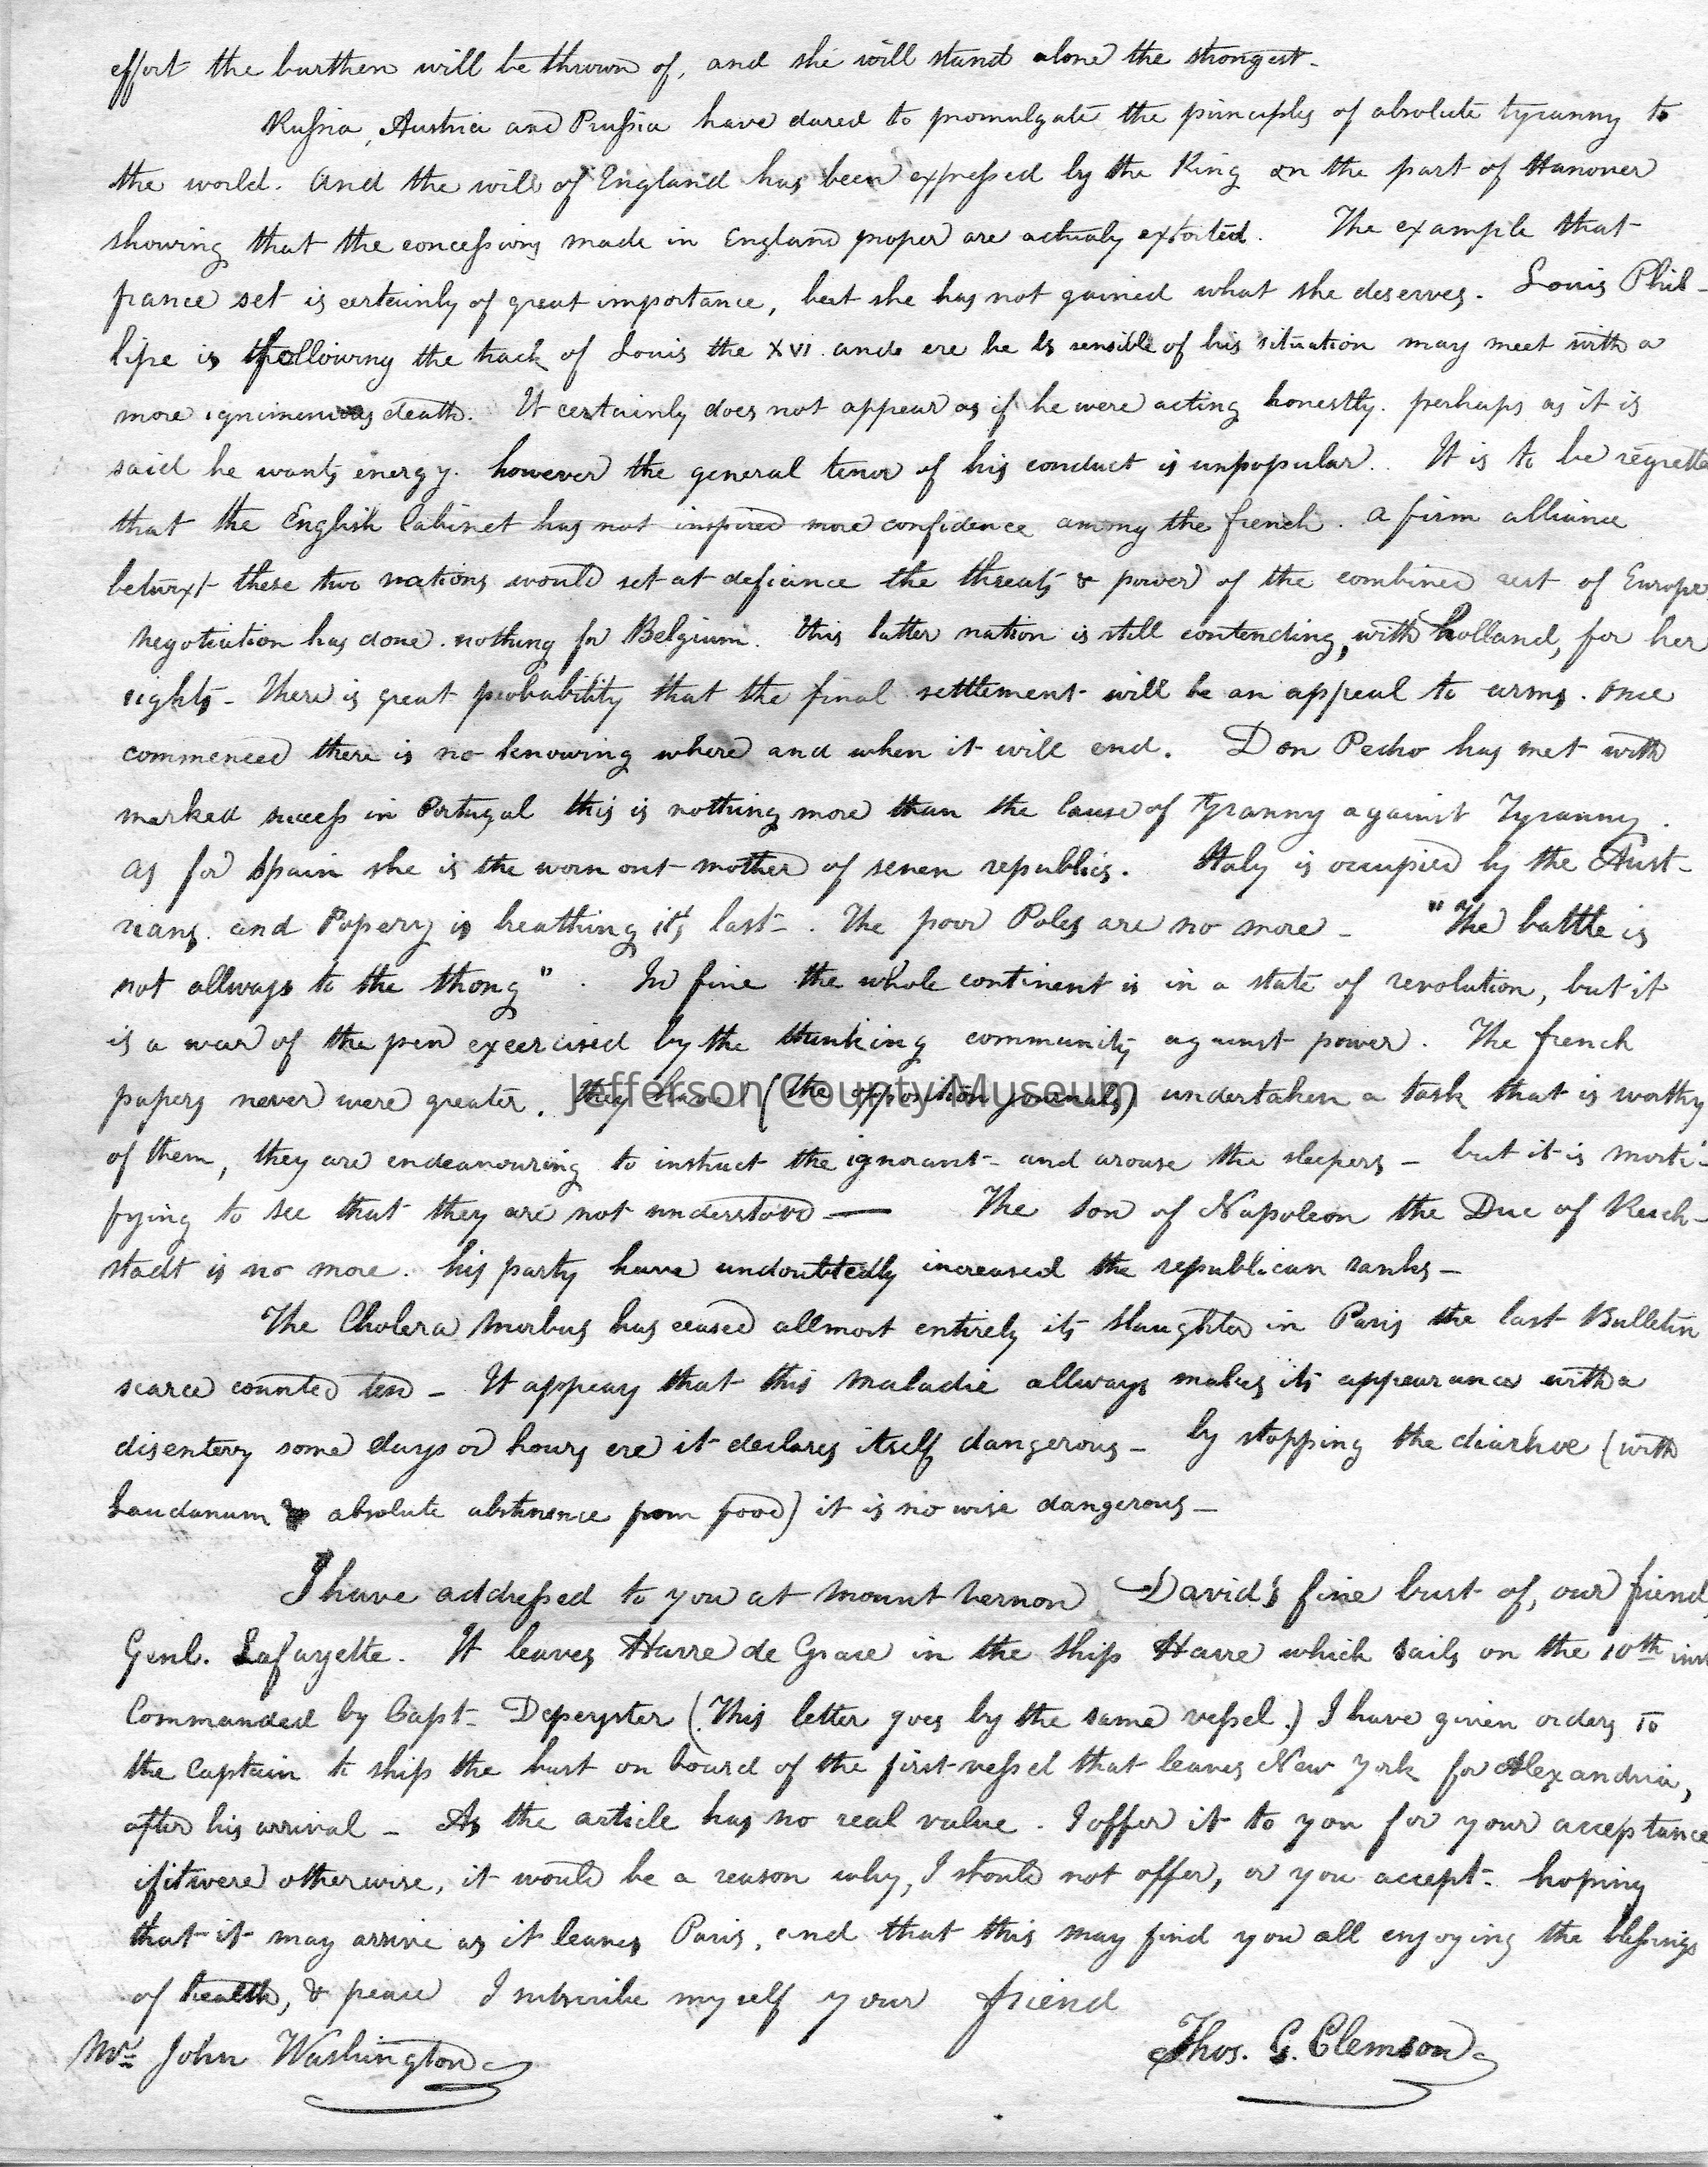 effort the burthen will be thrown of, and she will stand alone the strongest-
Russia, Austria and Prussia have dared to promulgate the principles of absolute tyranny to
the world. And the will of England has been expressed by the King on the part of Hanover
showing that the concessions made in England proper are actualy extorted. The example that
france set is certainly of great importance, but she has not gained what she deserves. Louis Phil-
lipe is following the track of Louis the XVI. and ere he is sensible of his situation may meet with a
more ignominious death. It certainly does not appear as if he were acting honestly. perhaps as it is
said he wants energy. however the general tenor of his conduct is unpopular. It is to be regrette
that the English Cabinet has not inspired more confidence among the french. a firm alliance
betwixt these two nations would set at defiance the threats & power of the combined rest of Europe
Negotiation has done nothing for Belgium. This latter nation is still contending, with holland, for her
rights- There is great probability that the final settlement will be an appeal to arms. once
commenced there is no knowing where and when it will end. Don Pedro has met with
marked success in Portugal this is nothing more than the cause of tyranny against Tyranny.
As for Spain she is the worn out mother of seven republics. Italy is occupied by the Aust-
rians. and Popery is breathing its last-. The poor Poles are no more- "The battle is
not allways to the thong". In fine the whole continent is in a state of revolution, but it
is a war of the pen exercised by the thinking community against power. The french
papers never were greater. they have (the opposition journals) undertaken a task that is worthy
Jefferson County Museum
of them, they are endeavouring to instruct the ignorant- and arouse the sleepers- but it is morti-
fying to see that they are not understood — The son of Napoleon the Duc of Reich-
stadt is no more. his party have undoubtedly increased the republican ranks-
The Cholera Morbus has ceased allmost entirely its slaughter in Paris the last Bulletin
scarce counted ten- It appears that this Maladie allways makes its appearance with a
disentery some days or hours ere it declares itself dangerous- by stopping the diarhoe (with
Laudanum & absolute abstinence from food) it is no wise dangerous-
I have addressed to you at Mount Vernon David's fine bust of, our friend
Genl. Lafayette. It leaves Havre de Grace in the Ship Havre which sails on the 10th ins
Commanded by Capt- Depeyster (This letter goes by the same vessel.) I have given orders to
the Captain to ship the bust on board of the first vessel that leaves New York for Alexandria,
after his arrival- As the article has no real value. I offer it to you for your acceptance
if it were otherwise, it would be a reason why, I should not offer, or you accept- hoping
that it may arrive as it leaves Paris, and that this may find you all enjoying the blessings
of health, & peace I subscribe myself your friend
Thos. G. Clemson
Mr John Washington